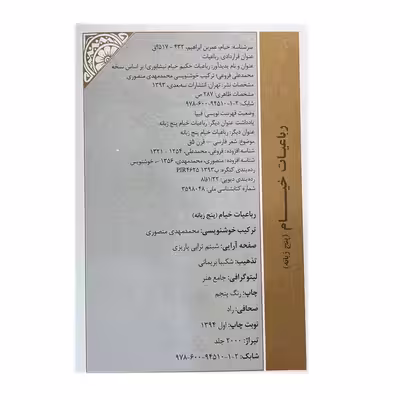 سرشناسه: خیام، عمربن ابراهیم، ۴۳۲ - ۵۱۷ق
عنوان قراردادی: رباعیات
عنوان و نام پدیدآور: رباعیات حکیم خیام نیشابوری/ بر اساس نسخه
محمدعلی فروغی؛ ترکیب خوشنویسی محمدمهدی منصوری
مشخصات نشر: تهران: انتشارات سه‌بعدی، ۱۳۹۳
مشخصات ظاهری: ۲۸۷ ص
شابک: ۲-۱۰-۹۴۵۱۰-۶۰۰-۹۷۸
وضعیت فهرست نویسی: فیپا
یادداشت: عنوان دیگر: رباعیات خیام پنج زبانه.
عنوان دیگر: رباعیات خیام پنج زبانه
موضوع: شعر فارسی - قرن ۵ق
شناسه افزوده: فروغی، محمدعلی، ۱۲۵۴ - ۱۳۲۱
شناسه افزوده: منصوری، محمدمهدی، ۱۳۵۶ - خوشنویس
رده‌بندی کنگره: ‍۱۳۹۳ PIR۴۶۲۵
رده‌بندی دیویی: ۸فا۱/۲۲
شماره کتابشناسی ملی: ۳۵۹۸۰۴۸
رباعیات خیام (پنج زبانه)
ترکیب خوشنویسی: محمدمهدی منصوری
صفحه آرایی: شبنم ترابی پاریزی
تذهیب: شکیبا بریمانی
لیتوگرافی: جامع هنر
چاپ: رنگ پنجم
صحافی: راد
نوبت چاپ: اول ۱۳۹۴
تیراژ: ۲۰۰۰ جلد
شابک: ۲-۱۰-۹۴۵۱۰-۶۰۰-۹۷۸
رباعیات خیام (پنج زبانه)